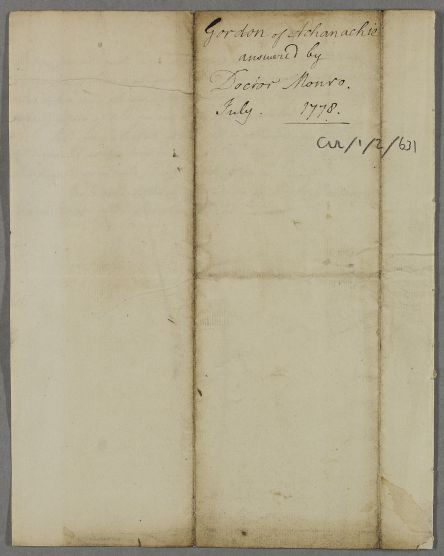 Gordon of Achanachie
answered by
Doctor Monro.
July. 1778.
CUL/1/2/631